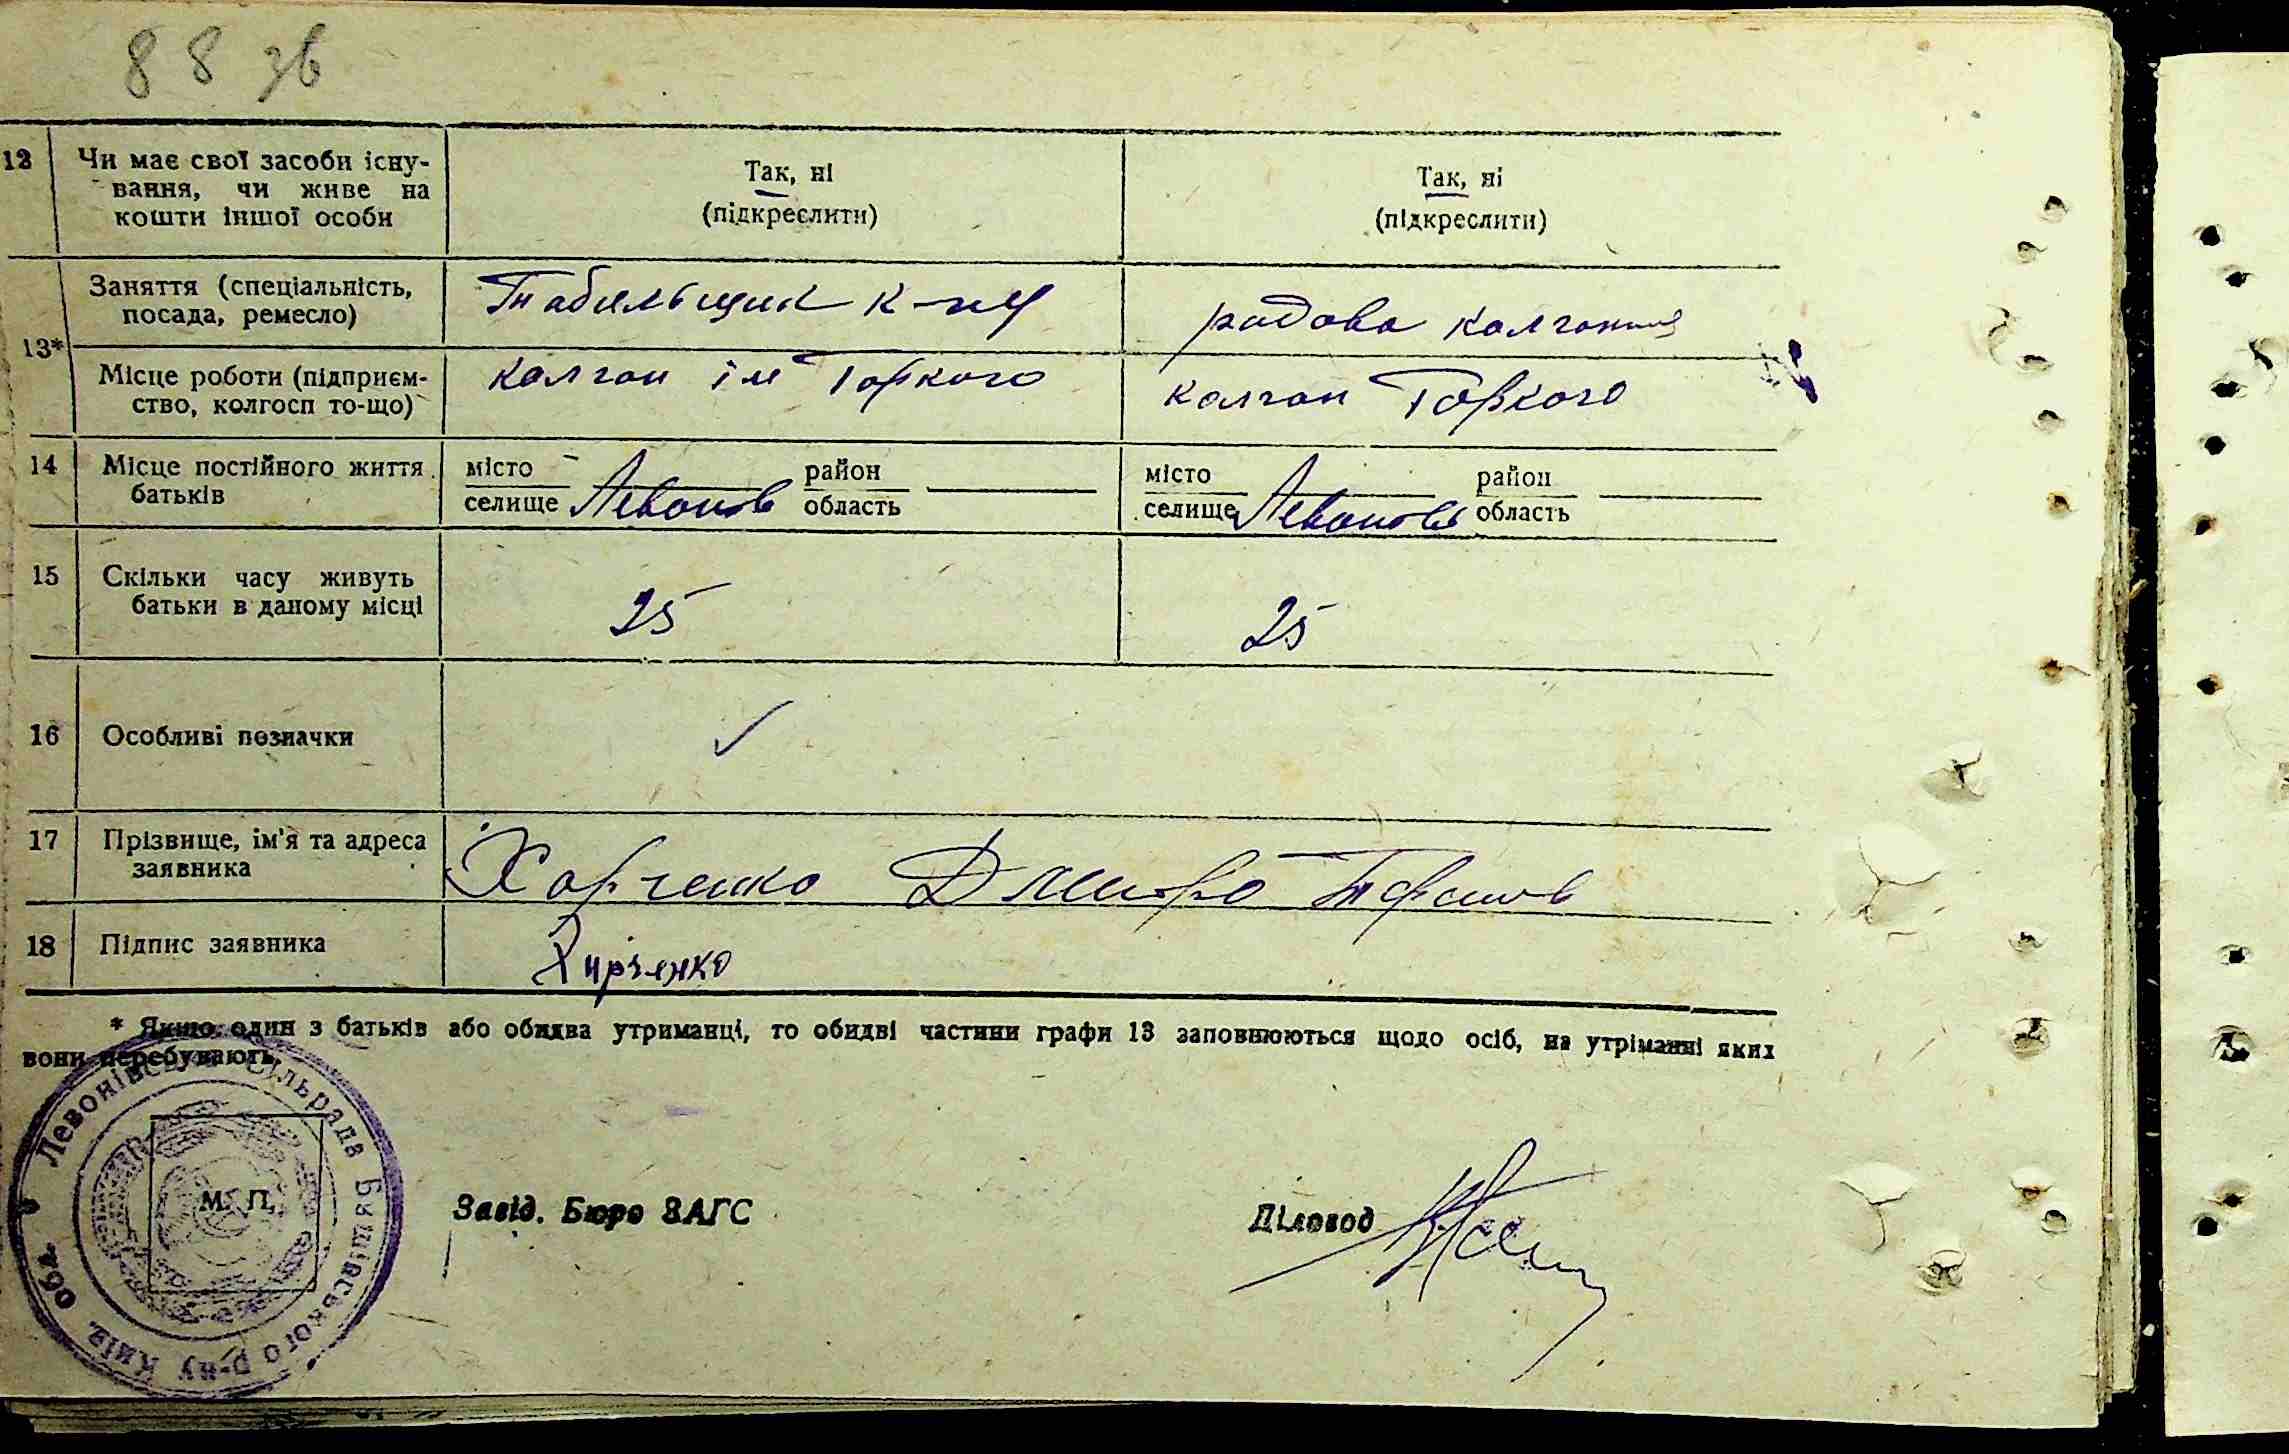 88 зв
12 Чи має свої засоби існу-
вання, чи живе на
кошти іншої особи
Так, ні
(підкреслити)
Так, ні
(підкреслити)
13*
Заняття (спеціальність,
посада, ремесло)
Табельщик к-пу
рядова
Місце роботи (підприєм-
ство, колгосп то-що)
колгосп ім Горкого
колгосп Горкого
14 Місце постійного життя
батьків
місто
селище
район
область
місто
селище
район
область
15 Скільки часу живуть
батьки в даному місці
25
25
16 Особливі позначки
17 Прізвище, ім'я та адреса
заявника
Харченко Дмитро
18 Підпис заявника
Харченко
* Якщо один з батьків або обидва утриманці, то обидві частини графи 13 заповнюються щодо осіб, на утріманні яких
вони перебувають.
Левонівська Сільрада
р-ну Київ. Обл.
М. П.
Завід. Бюро ЗАГС
Діловод